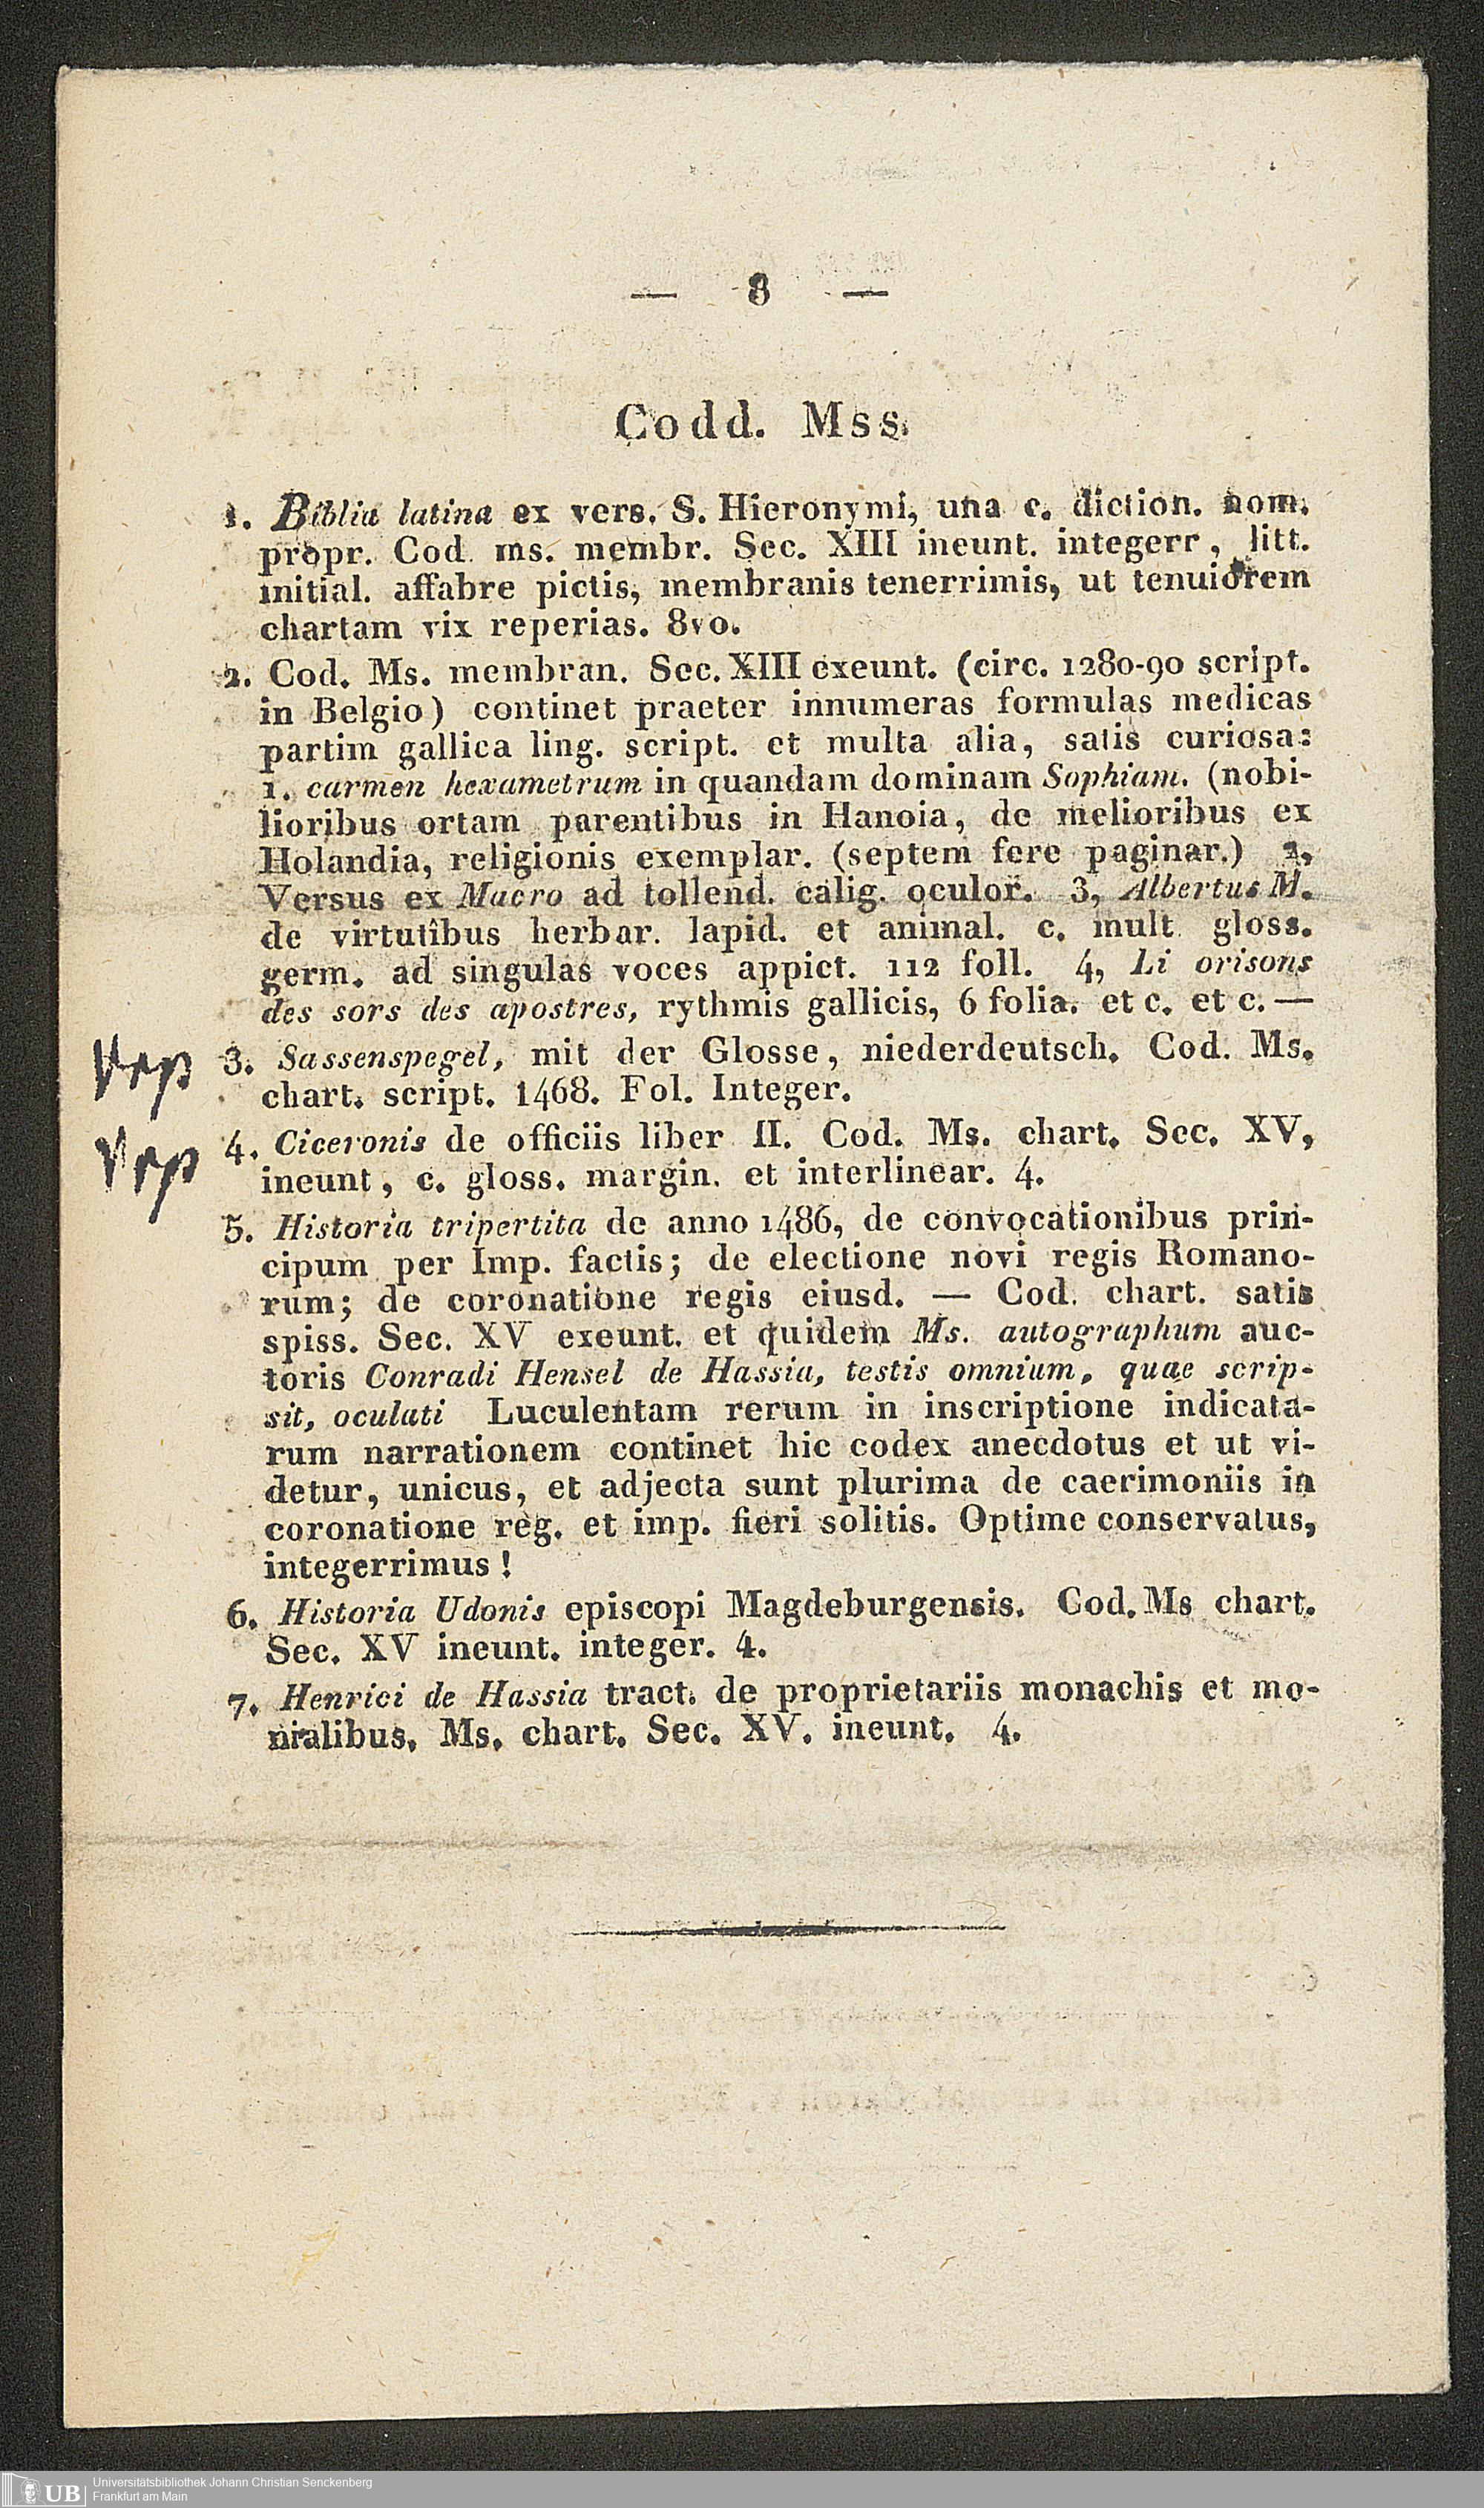 — 8 —
Codd. Mss.
1. Biblia latina ex vers. S. Hieronymi, una c. diction. nom.
propr. Cod. ms. membr. Sec. XIII ineunt. integerr, litt.
initial. affabre pictis, membranis tenerrimis, ut tenuiorem
chartam vix reperias. 8vo.
2. Cod. Ms. membran. Sec. XIII exeunt. (circ. 1280-90 script.
in Belgio) continet praeter innumeras formulas medicas
partim gallica ling. script. et multa alia, satis curiosa:
1. carmen hexametrum in quandam dominam Sophiam. (nobi-
lioribus ortam parentibus in Hanoia, de melioribus ex
Holandia, religionis exemplar. (septem fere paginar.) 2,
Versus ex Macro ad tollend. calig. oculor. 3, Albertus M.
de virtutibus herbar. lapid. et animal. c. mult. gloss.
germ. ad singulas voces appict. 112 foll. 4, Li orisons
des sors des apostres, rythmis gallicis, 6 folia. et c. et c. —
3. Sassenspegel, mit der Glosse, niederdeutsch. Cod. Ms.
chart. script. 1468. Fol. Integer.
4. Ciceronis de officiis liber II. Cod. Ms. chart. Sec. XV,
ineunt, c. gloss. margin. et interlinear. 4.
5. Historia tripertita de anno 1486, de convocationibus prin-
cipum per Imp. factis; de electione novi regis Romano-
rum; de coronatione regis eiusd. — Cod. chart. satis
spiss. Sec. XV exeunt. et quidem Ms. autographum auc-
toris Conradi Hensel de Hassia, testis omnium, quae scrip-
sit, oculati Luculentam rerum in inscriptione indicata-
rum narrationem continet hic codex anecdotus et ut vi-
detur, unicus, et adjecta sunt plurima de caerimoniis in
coronatione reg. et imp. fieri solitis. Optime conservatus,
integerrimus!
6. Historia Udonis episcopi Magdeburgensis. Cod. Ms chart.
Sec. XV ineunt. integer. 4.
7. Henrici de Hassia tract. de proprietariis monachis et mo-
nialibus. Ms. chart. Sec. XV. ineunt. 4.
UB Universitätsbibliothek Johann Christian Senckenberg
Frankfurt am Main